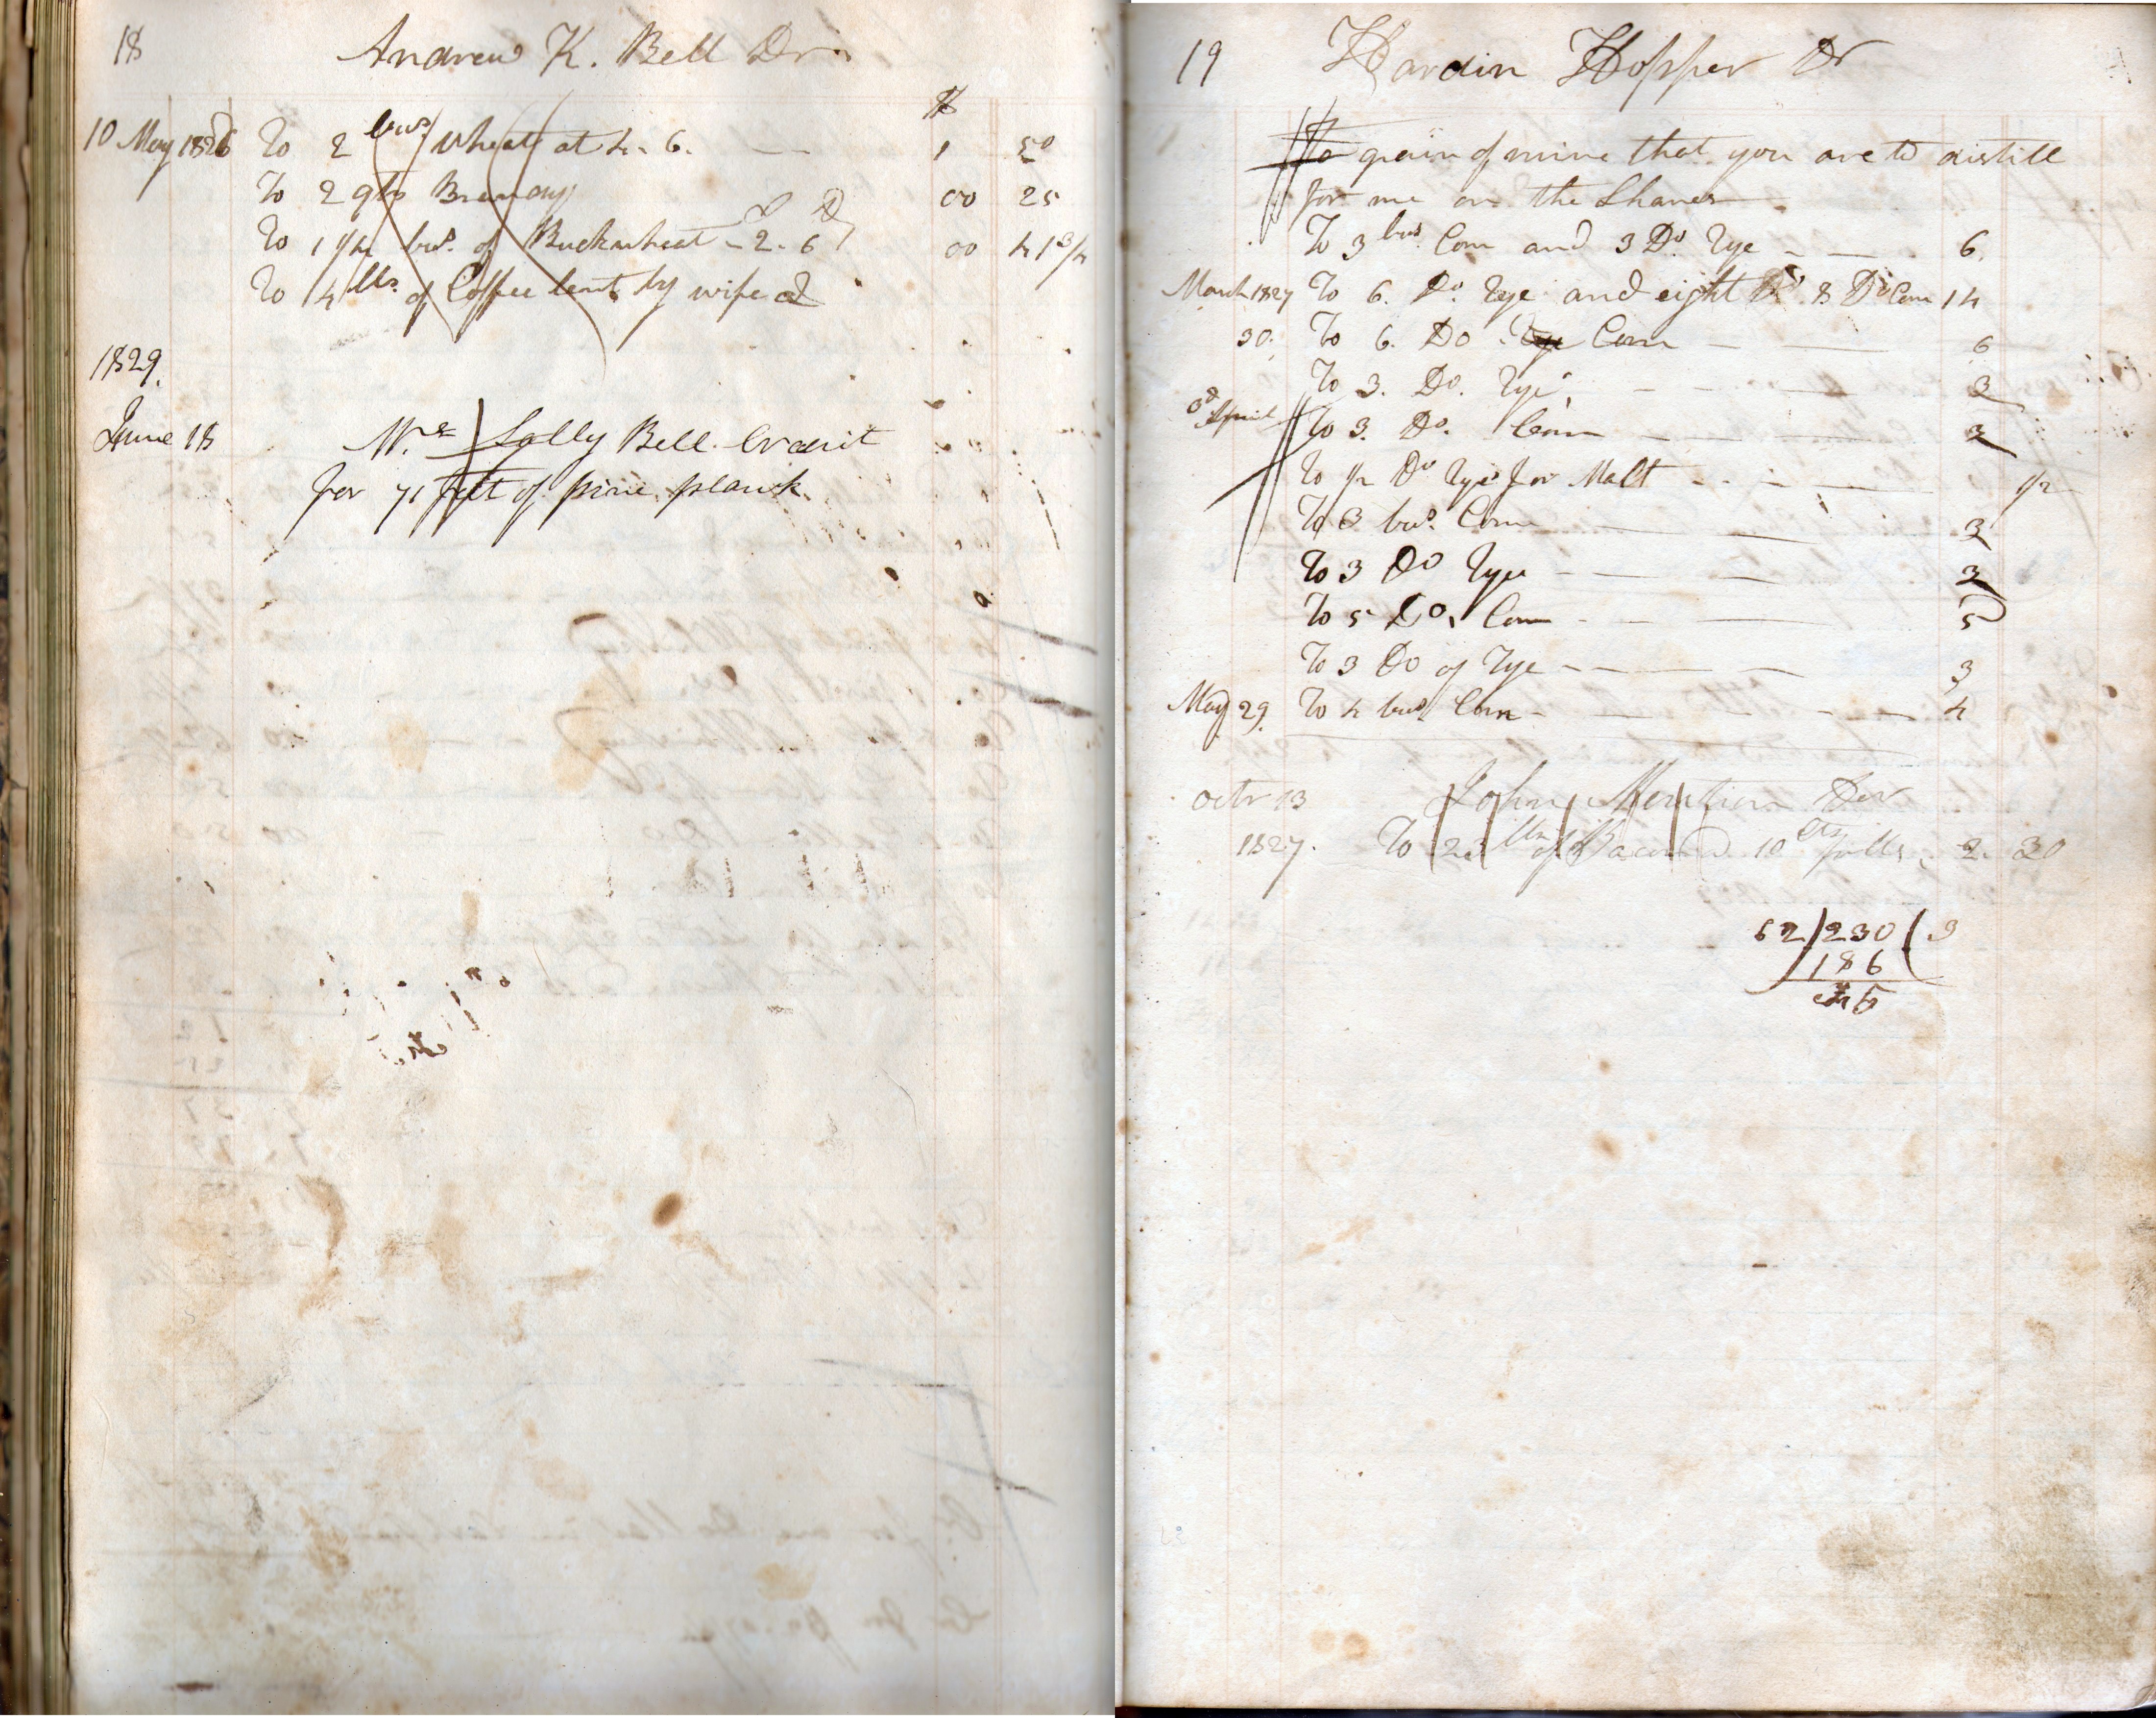 18 Andrew K. Bell Dr.
$
10 May 1826 To 2 bus. Wheat at 4-6. — 1 50
To 2 qts Brandy 00 25
To 1 1/4 bus. of Buckwheat - 2-6 00 41 3/4
To 4 lbs. of Coffee lent by wife
1829.
June 18 Mrs Sally Bell Credit
for 71 feet of pine plank
19 Hardin Hopper Dr
To grain of mine that you are to distill
for me on the Shares
To 3 bus. Corn and 3 Do. Rye - — . 6
March 1827 To 6. Do. Rye and eight Do. 8 Do Corn 14
30. To 6. Do. Rye Corn — — 6
To 3. Do. Rye — — 3
April To 3. Do. Corn — — 3
To 1/2 Do Rye for Malt - - — 1/2
To 3 bus. Corn — 3
To 3 Do Rye — — 3
To 5 Do. Corn - — 5
To 3 Do of Rye — — 3
May 29. To 4 bus Corn - — — 4
Octr 13 John Dr
1827. To 23 lbs of Bacon @ 10 cts 2. 30
62)230(3
186